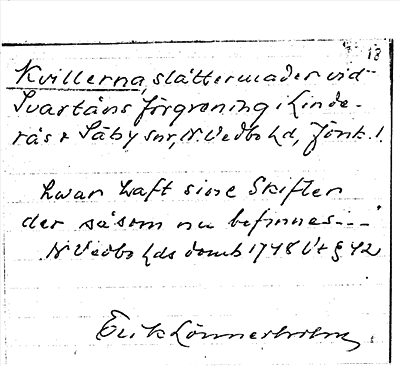 13
Kvillerna, slåttermader vid
Svartåns förgrening i Linde-
rås & Säby snr, N. Vedbo hd, Jönk. l.
hwar haft sine Skifter
der såsom nu befinnes---
N Vedbo hds domb 1748 Vt § 42
Erik Lönnerholm